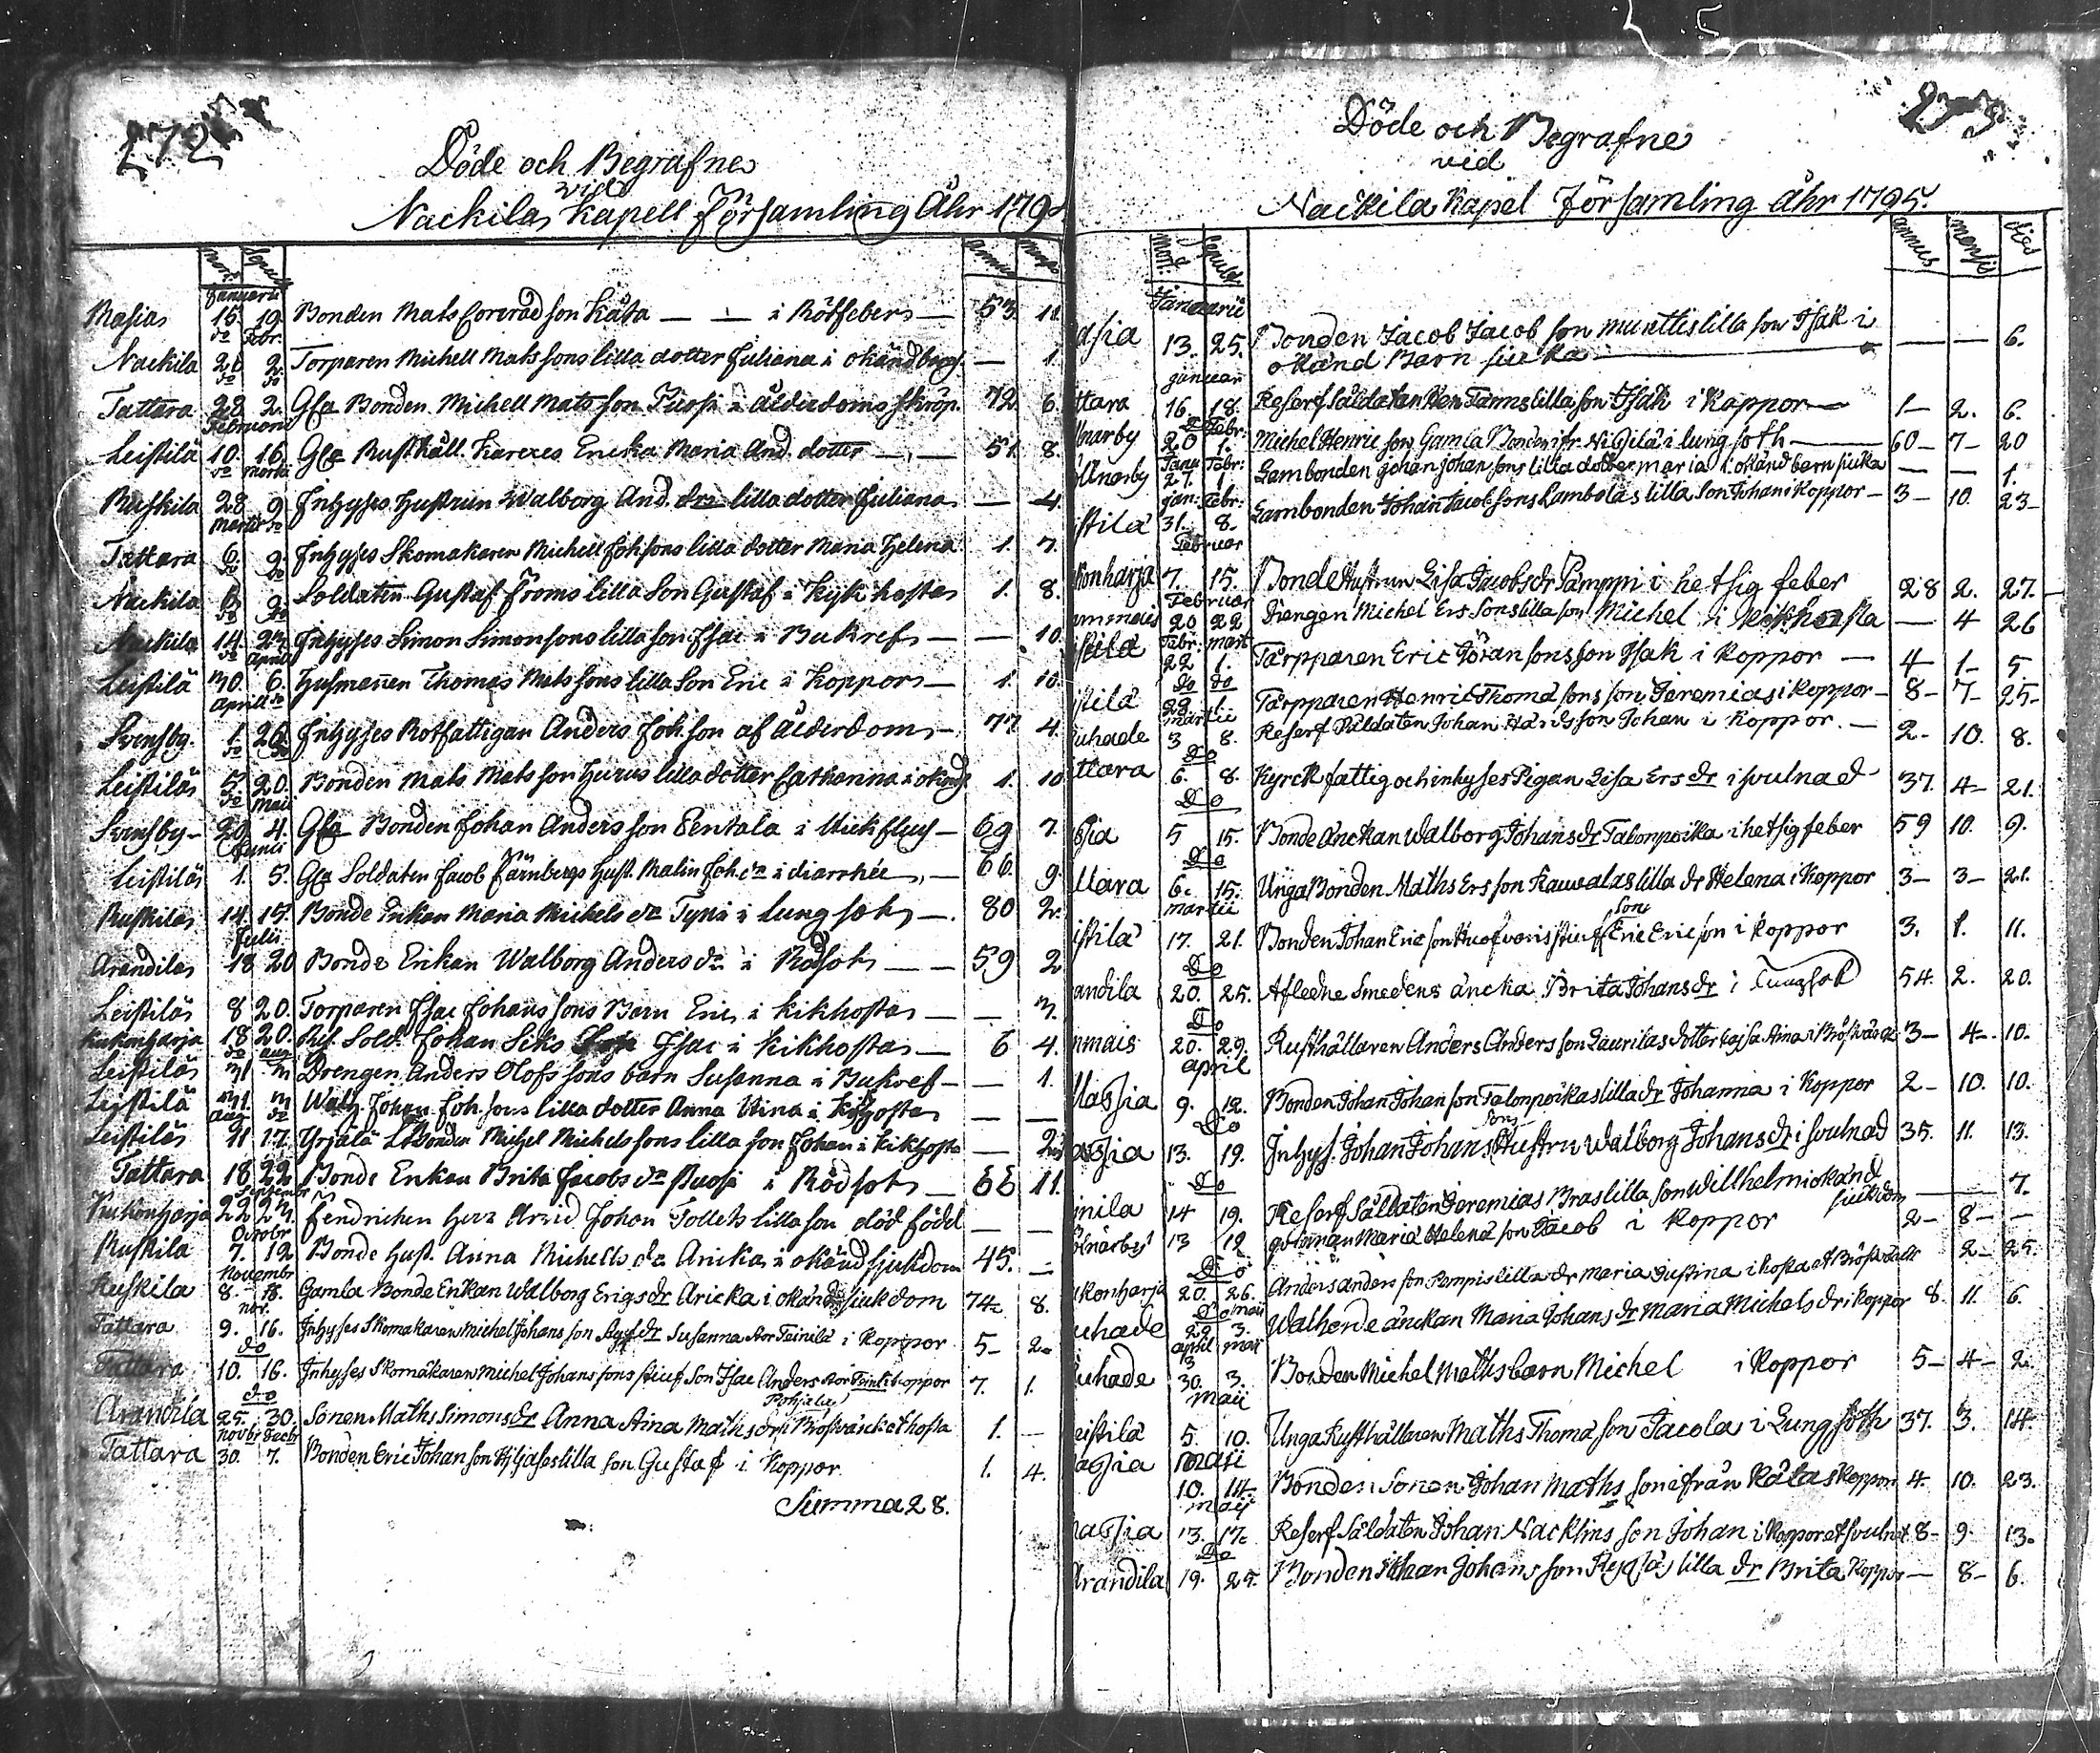 272
Döde och Begrafne
vid
Nackila Kapell Församling Åhr 179
mort. Sepult. annus mens
Januarii
Masia 15 19 Bonden Mats Conradson Kåta — — i Rötfeber — 53. 11
do Febr.
Nackila 26 2. Torparen Michell Matssons lilla dotter Juliana i okänd — 1.
do do
Tattara 28 2. Gla Bonden Michell Matsson Puosi i ålderdoms skröp. 72 6
Februarii
Leistilä 10. 16. Gla Rusthåll. Kareres Encka Maria And. dotter — 51. 8.
do Martii
Ruskila 28 9 Inhyses Hustrun Walborg And. dra lilla dotter Juliana — 4.
Martii do
Tattara 6. 9. Inhyses Skomakaren Michell Johsons lilla dotter Maria Helena 1. 7.
do do
Nackila 6 9. Soldaten Gustaf Froms lilla Son Gustaf i Kikhosta 1. 8.
do do
Nackila 14. 23 Inhyses Simon Simonsons lilla son Isac i Bukref — — 10.
do April
Leistilä 30. 6. Husmannen Thomas Matssons lilla Son Eric i Koppor — 1. 10.
Aprill do
Svensby. 1. 26. Inhyses Rotfattigan Anders Johson af ålderdom — 77 4.
do do
Leistilä 5. 20. Bonden Mats Matsson Hurus lilla dotter Catharina i okänd 1. 10
do Maii
Svensby — 20 4. Gla Bonden Johan Andersson Pentala i — 69 7.
Junii
Leistilä 1. 5. Gla Soldaten Jacob Färnbergs Hust. Malin Joh. dr i diarrhée — 66. 9.
Ruskila 14. 15. Bonde Enkan Maria Michels dr Tyni i Lungsot — 80 2.
Julii
Arandila 18 20 Bonde Enkan Walborg Anders dr i Rödsot — — 59 2
Leistilä 8 20. Torparen Isac Johanssons Barn Eric i Kikhosta — — 3.
Kukonharja 18 20. Res. Sold. Johan Siks Son Isac i Kikhosta — 6 4.
do aug
Leistilä 31 3 Drengen Anders Olofssons barn Susanna i Bukref — — 1.
Leistilä 31. 3 Johan Joh. sons lilla dotter Anna Stina i Kikhosta — —
Aug do
Leistilä 11 17. Yrjälä Bonden Michel Michelssons lilla son Johan i Kikhosta — 2
Tattara 18 22 Bonde Enkan Brita Jacobs dr Puosi i Rödsot — 66 11.
Septembr
Kukonharja 22 27. Fendrichen Herr Arvid Johan Tollets lilla son död född — —
Octobr
Ruskila 7. 12 Bonde Hust. Anna Michells dr Anicka i okänd sjukdom 45. —
Novembr
Ruskila 8. 18. Gamla Bonde Enkan Walborg Erigs dr Aricka i okänd siukdom 74 8.
nov.
Tattara 9. 16. Inhyses Skomakaren Michel Johansson Styf dr Susanna i Koppor 5 — 2 —
do
Tattara 10. 16. Inhyses Skomakaren Michel Johanssons stiuf Son Isac Anders son koppor 7. 1.
do Pohjala
Arandila 25. 30. Sonen Maths Simons dr Anna Aina Maths dr i Bröstvärck et hosta 1. —
Novbr Decbr
Tattara 30. 7. Bonden Eric Johansson Hiljas lilla son Gustaf i Koppor. 1. 4.
Summa 28.
273
Döde och Begrafne
vid
Nackila Kapel Församling åhr 1795.
Mort. Sepult. annus mensis dies
Januarii
asia 13. 25. Bonden Jacob Jacobson munttis lilla son Isak i
okänd Barn siuka — — — 6.
Januar
ttara 16. 18. Reserf Såldaten Hen Tamms lilla son Isak i Koppor — 1 — 2. 6.
Febr:
narby 20 1. Michel Henricson Gamla Bonden i lung soth — 60 — 7 — 20
Janu Febr:
narby 27. 1. Gambonden Johan Johansons lilla dotter maria i okänd barn siuka — — 1.
Jan: Febr:
istilä 31. 8. Gambonden Johan Jacobsons Lambolas lilla Son Johan i Koppor — 3 — 10. 23 —
Februar
konharja 7. 15. Bonde Hustrun Lisa Jacobs dr Pamppi i hetsig feber 28 2. 27. —
Februar
ammais 20 22 Drengen Michel Ers Sons lilla son Michel i Kikhosta — 4 26
Febr: mart
istilä 22 1. Tårpparen Eric Göransons son Isak i Koppor — 4 — 1 — 5
Do Do
istilä 22. 1. Tårpparen Henric Thomä sons son Jeremias i koppor — 8 — 7 — 25 —
martii
uhade 3 8. Reserf Såldaten Johan Hårds son Johan i Koppor. — 2 — 10. 8.
Do
ttara 6. 8. Kyrck fattig och inhyses Pigan Lisa Ers dr i svulnad 37. 4 — 21.
Do
asia 5 15. Bonde änckan Walborg Johans dr Talonpoika i hetsig feber 59 10. 9.
Do
ttara 6. 15. Unga Bonden Maths Ersson Kauvalas lilla dr Helena i Koppor 3 — 3 — 21.
martii son
istilä 17. 21. Bonden Johan Ericson stiuf Eric Ericson i koppor 3. 1. 11.
Do
andila 20. 25. Afledne Smedens äncka Brita Johans dr i Lungsot 54. 2. 20.
Do
mmais 20. 29. Rusthållaren Anders Andersson Lauritas dotter Cajsa Aina i Bröstvärck 3 — 4 — 10.
April
Massia 9. 12. Bonden Johan Johansson Talonpoikas lilla dr Johanna i Koppor 2 — 10. 10.
Do Sons
assia 13. 19. Inhys. Johan Johans Hustru Walborg Johans dr i svulnad 35. 11. 13.
Do
inila 14 19. Reserf Såldaten Jeremias Bras lilla son Willhelm i okänd — — 7.
siuckdom
önärby 13 12 qvinnan Maria Helena son Jacob i Koppor 2 — 8 — —
Do
ukonharja 20. 26. Anders Andersson Pempis lilla dr Maria Justina i hosta et Bröstvärk 2 — 25.
Do maii
uhade 22 3. Walherde änckan Maria Johans dr Maria Michels dr i koppor 8. 11. 6.
april maii
uhade 30. 3. Bonden Michel Maths barn Michel i Koppor 5 — 4 — 2.
Maii
eistilä 5. 10. Unga Rusthållaren Maths Thomä son Jacola i Lungsoth 37. 3. 14.
Maii
assia 10. 14. Bonden Sonen Johan Maths son ifrån Kåtas Koppor 4. 10. 23.
maij
assia 13. 17. Reserf Såldaten Johan Nacklins son Johan i Koppor et svulnat 8 — 9. 13.
Do
Arandila 19. 25. Bonden Johan Johansson lilla dr Brita Koppor — 8 — 6.